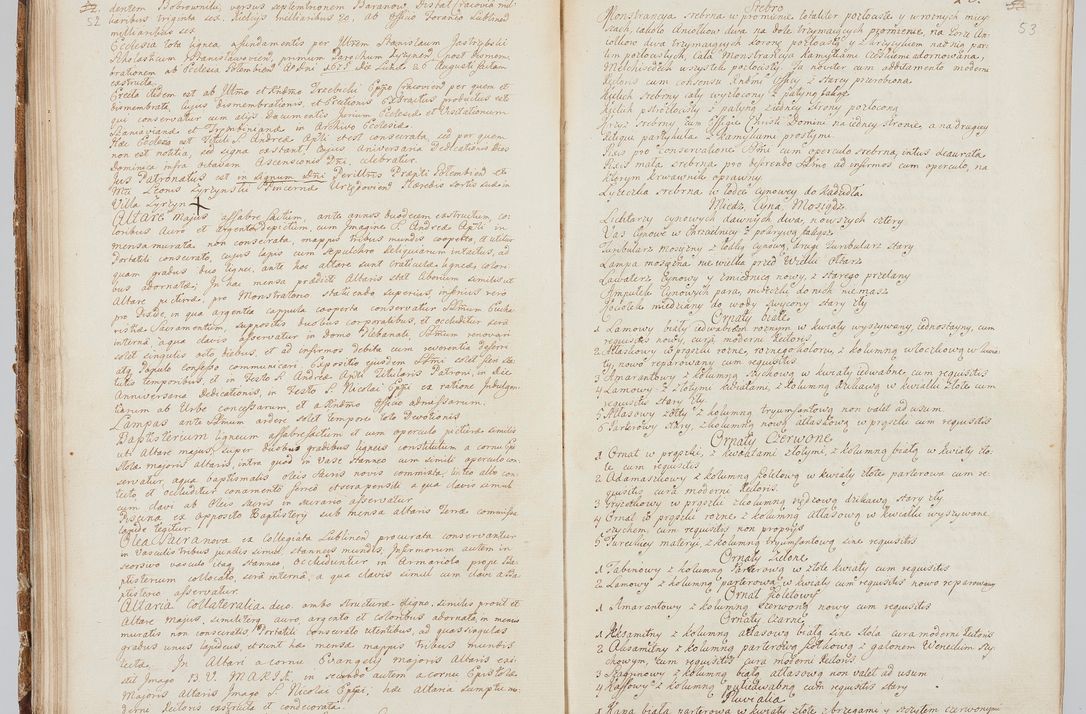 52
dentem Bobrowniki, versus septemtrionem Baranow, Distat Cracovia mil
liaribus triginta sex. Kielcijs milliaribus 20, ab Offio Foraneo Lublinen
milliaribus sex.
Ecclesia tota lignea a fundamentis per Illrem Stanislaum Jastrzębski
Scholasticum Stanislaovicien, primum Parochum Zyrzynen, post dismem-
brationem ab Ecclesia Gołembien
castructa.
Erecta eadem est ab Illmo et Rndmo Trzebicki Eppo Cracovien per quem et
dismembrata, cujus dismembrationis, et Erectionis Extractus productus est
qui conservatur cum alijs Documentis jurium Ecclesiæ et Visitationum
in Archivo Ecclesiæ.
Hæc Ecclesia est Tituli S. Andreæ Apli et est consecrata, sed per quem
non est notitia, sed signa exstant, Cujus Aniversaria Dedicationis Dies
Dominica infra octavam Ascensionis Dni, celebratur.
Jus Patronatus est in signum Dni Perillris Præpti Gołembien et
Mci Leonis Zyrzynski Pincernæ Urzędovien Hæredis sortis suæ in
Villa Zyrzyn
Altare Majus affabre factum, ante annos duodecem exstructum, co-
loribus Auro et Argento depictum, cum Imagine S. Andreæ Apli in
mensa murata non consecrata, mappis tribus mundis cooperta, et utitur
Portatili consecrato, cujus lapis cum Sepulchro Reliquiarum intactus, ad
quam gradus duo lignei, ante hoc altare sunt craticulæ ligneæ colori-
bus adornatæ, In hac mensa prædicti Altaris stat Ciborium similis ut
Altare picturæ, pro Monstratorio statuendo superius, inferius vero
pro Pixide, in qua argentea cappula cooperta conservatur SSmum Eucha-
ristiæ Sacramentum, suppositis duobus corporalibus, et occluditur sera
interna aqua clavis asservatur in domo Plebanali, SSmum renovari
solet singulis octo diebus, et ad infirmos debita cum reverentia deferri
atq Populo confesso communicari Expositio ejusdem SSmi solet fieri sta-
tutis temporibus, et in Festo S. Andreæ Apli Titularis Patroni, in die
Anniversaria Dedicationis, in Festo S. Nicolai Eppi ex ratione Indulgen-
tiarum ab Urbe concessarum, et a Rndmo Offio admissarum.
Lampas ante SSmum ardere solet tempore toto Devotionis
Baptisterium ligneum affabrefactum et cum operculo picturæ similis
ut Altare majus, super duobus gradibus ligneis constitutum a cornu Epi-
stolæ majoris Altaris, intra quod in Vase stanneo cum simili operculo con-
servatur, aqua baptismalis Oleis Sacris novis commixta, linteo albo con-
tecto, et occluditur conamento ferreo et sera pensili a qua clavis simul
cum clavi ab Oleis Sacris in sacrario asservatur.
Piscina, ex Opposito Baptisterij sub mensa altaris Terræ commissa
lapide tegitur.
Olea Sacra nova ex Collegiata Lublinen procurata conservantur
in Vasculis tribus junctis simul, stanneis mundis, Infirmorum autem in
seorsivo vasculo itaq stanneo, occluduntur in Armariolo prope Ba-
ptisterium collocato, sera interna, a qua clavis simul cum clavi a Ba-
ptisterio asservatur.
Altaria Collateralia duo. ambo structuræ digno, similis prout et
Altare Majus, similiterq auro, argento et coloribus adornata, in mensis
muratis non consecratis Portatili consecrato utentibus, ad quas singulas
gradus unus lapideus, et sunt hæ mensæ mappis tribus mundis
tectæ. In Altari a cornu Evangelij majoris Altaris exi-
stit Imago B. V. MARIÆ, in secundo autem a cornu Epistolæ
Majoris Altaris Imago S. Nicolai Eppi; hæc Altaria sumptu mo-
derni Rectoris exstructa et condecorata.
53
Srebro
Monstrancya srebrna w promienie totaliter pozłocista y w roznych miey-
scach, całości Aniołow dwa na dole trzymaiących promienie, na gorze An-
iołkow dwa trzymaiących koronę pozłocistą y krzyzykiem nad nią par-
tim pozłocistych, Cała Monstrancya kamykami Ceskiemi adornowana,
Melchisedech w szystek pozłocisty. Ta nescitur cum additamento moderni
Rectoris cum consensu Rndmi Offij z starey przerobiona.
Kielich srebrny cały wyzłocony z patyną takąz
Kielich pstrozłocisty z patyną z iedney strony pozłoconą
Krzyz srebrny cum Effigie Christi Domini na iedney stronie, a na drugiey
Religia partykuła z kamykami prostymi.
Puszka pro Conservatione SSmi cum operculo srebrna, intus deaurata
Puszka mała srebrna pro deferendo SSmo ad infirmos cum operculo, na
ktorym krwawnik oprawny.
Łyzeczka srebrna w łodce cynowey do kadzidła.
Miedz, Cyna, Mosiądz
Lichtarzy cynowych dawnych dwa, nowszych cztery
Vas Cynowe w Chrzcielnicy z pokrywą takąz
Turibularz mosięzny z łodką cynową, drugi Turibularz stary
Lampa mosięzna nie wielka przed Wielki Ołtarz
Lawaterz Cynowy y miednica nowy, z starego przelany
Ampułek Cynowych para, miseczki do nich nie masz
Kociołek miedziany do wody święconey stary zły
Ornaty białe
1 Lamowy biały iedwabiem roznym w kwiaty wyszywany, iednostayny, cum
requisitis nowy, curâ moderni Rectoris.
2 Atłaskowy w prązki rozne, roznego koloru, z kolumną włoczkową w kwia-
ty, nowo reparowany cum requisitis
3 Amarantowy z kolumną sztychową w kwiaty iedwabne cum requisitis
4 Lamowy z złotymi kwiatkami, z kolumną dzikawą w kwiatki złote cum
requisitis stary zły.
5 Atłasowy zółty z kolumną tryumfantową non valet ad usum.
6 Parterowy stary, z kolumną nową atłaskową w prązki cum requisitis
Ornaty Czerwone
1 Ornat w prązki, z kwiatami złotymi, z kolumną białą w kwiaty zło-
te cum requisitis
2 Adamaszkowy z kolumną fioletową w kwiaty złote parterową cum re-
quisitis curâ moderni Rectoris.
3 Gryzetkowy w prązki z kolumną rzędkową dzikawą stary zły
4 Ornat w prązki rozne, z kolumną atłasową w kwiatki wyszywane
sztychem cum requisitis non proprijs
5 Tureckiey materyi, z kolumną tryumfantową sine requisitis
Ornaty Zielone
1 Tabenowy z kolumną parterową w złote kwiaty cum requisitis
2 Lamowy z kolumną parterową w kwiaty cum requisitis nowo reparowany
Ornat Fioletowy
1 Amarantowy z kolumną czerwoną nowy cum requisitis
Ornaty Czarne
1 Axamitny z kolumną atłasową białą sine stola curâ moderni Rectoris
2 Axamitny z kolumną parterową fiołkową z galonem Weneckim szy-
chowym, cum requisitis curâ moderni Rectoris
3 Szagrynowy z kolumną białą atłasową non valet ad usum
4 Kaffowy z kolumną cum requisitis stary
Pluvialia
1 Kapa biała parterowa w kwiaty złote z brzegami y szczytem czerwonym